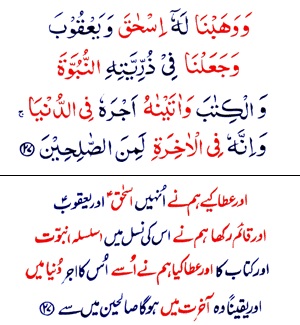 وَوَهَبْنَا لَهٗۤ اِسْحٰقَ وَيَعْقُوْبَ
وَجَعَلْنَا فِىْ ذُرِّيَّتِهِ النُّبُوَّةَ
وَالْكِتٰبَ وَاٰتَيْنٰهُ اَجْرَهٗ فِى الدُّنْيَا ۚ
وَاِنَّهٗ فِى الْاٰخِرَةِ لَمِنَ الصّٰلِحِيْنَ ﴿۲۷﴾
اور عطا کیے ہم نے اُنہیں اسحٰقؑ اور یعقوبؑ
اور قائم رکھا ہم نے اس کی نسل میں سلسلہ نبوّت
اور کتاب کا اور عطا کیا ہم نے اُسے اُس کا اجر دُنیا میں
اور یقیناً وہ آخرت میں ہوگا صالحین میں سے ﴿۲۷﴾